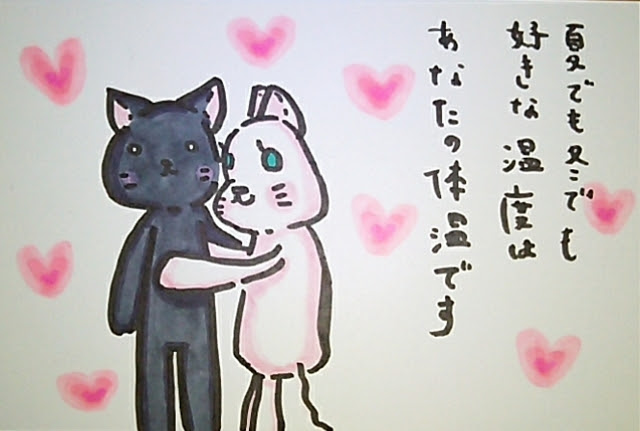 夏でも冬でも
好きな温度は
あなたの体温です